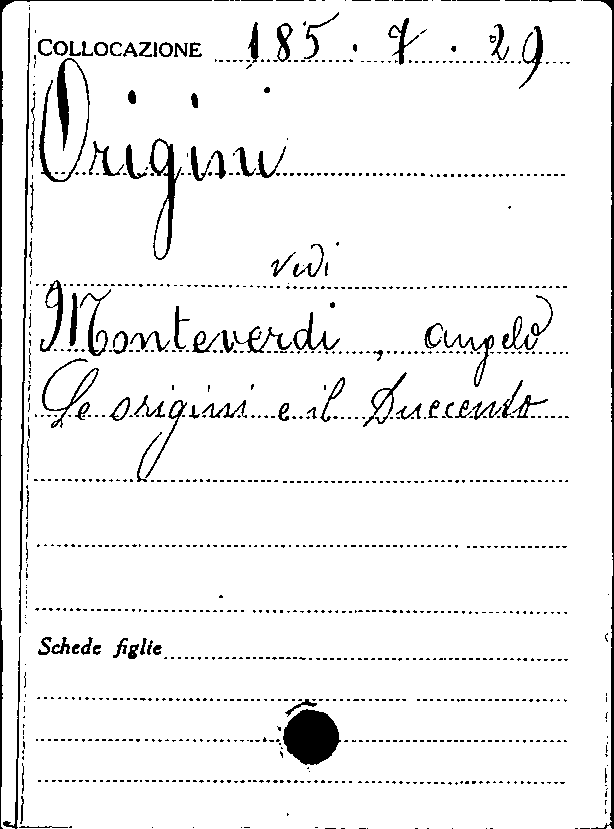 COLLOCAZIONE 185.7.29
Origini
vedi
Monteverdi, Angelo
Le origini e il Duecento
Schede figlie